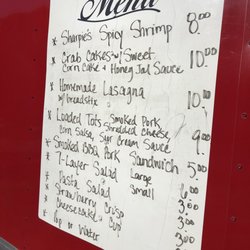 Menu
* Sharpie's Spicy Shrimp 8.00
* Crab Cakes w/ Sweet 10.00
Corn Cake & Honey Jal Sauce
* Homemade Lasagna 10.00
w/ breadstix
* Loaded Tots Smoked Pork 9.00
Corn Salsa, Shredded Cheese
Sour Cream Sauce
* Smoked BBQ Pork Sandwich 5.00
* 7-Layer Salad Large
Small
* Pasta Salad 3.00
* Strawberry Crisp
* Cheesecake
* Pop or Water